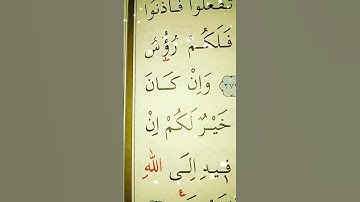 تَفْعَلُوا فَأْذَنُوا
فَلَكُمْ رُؤُسُ
﴿٢٧ وَاِنْ كَانَ
خَيْرٌ لَكُمْ اِنْ
فِيهِ اِلَى اللّٰهِ